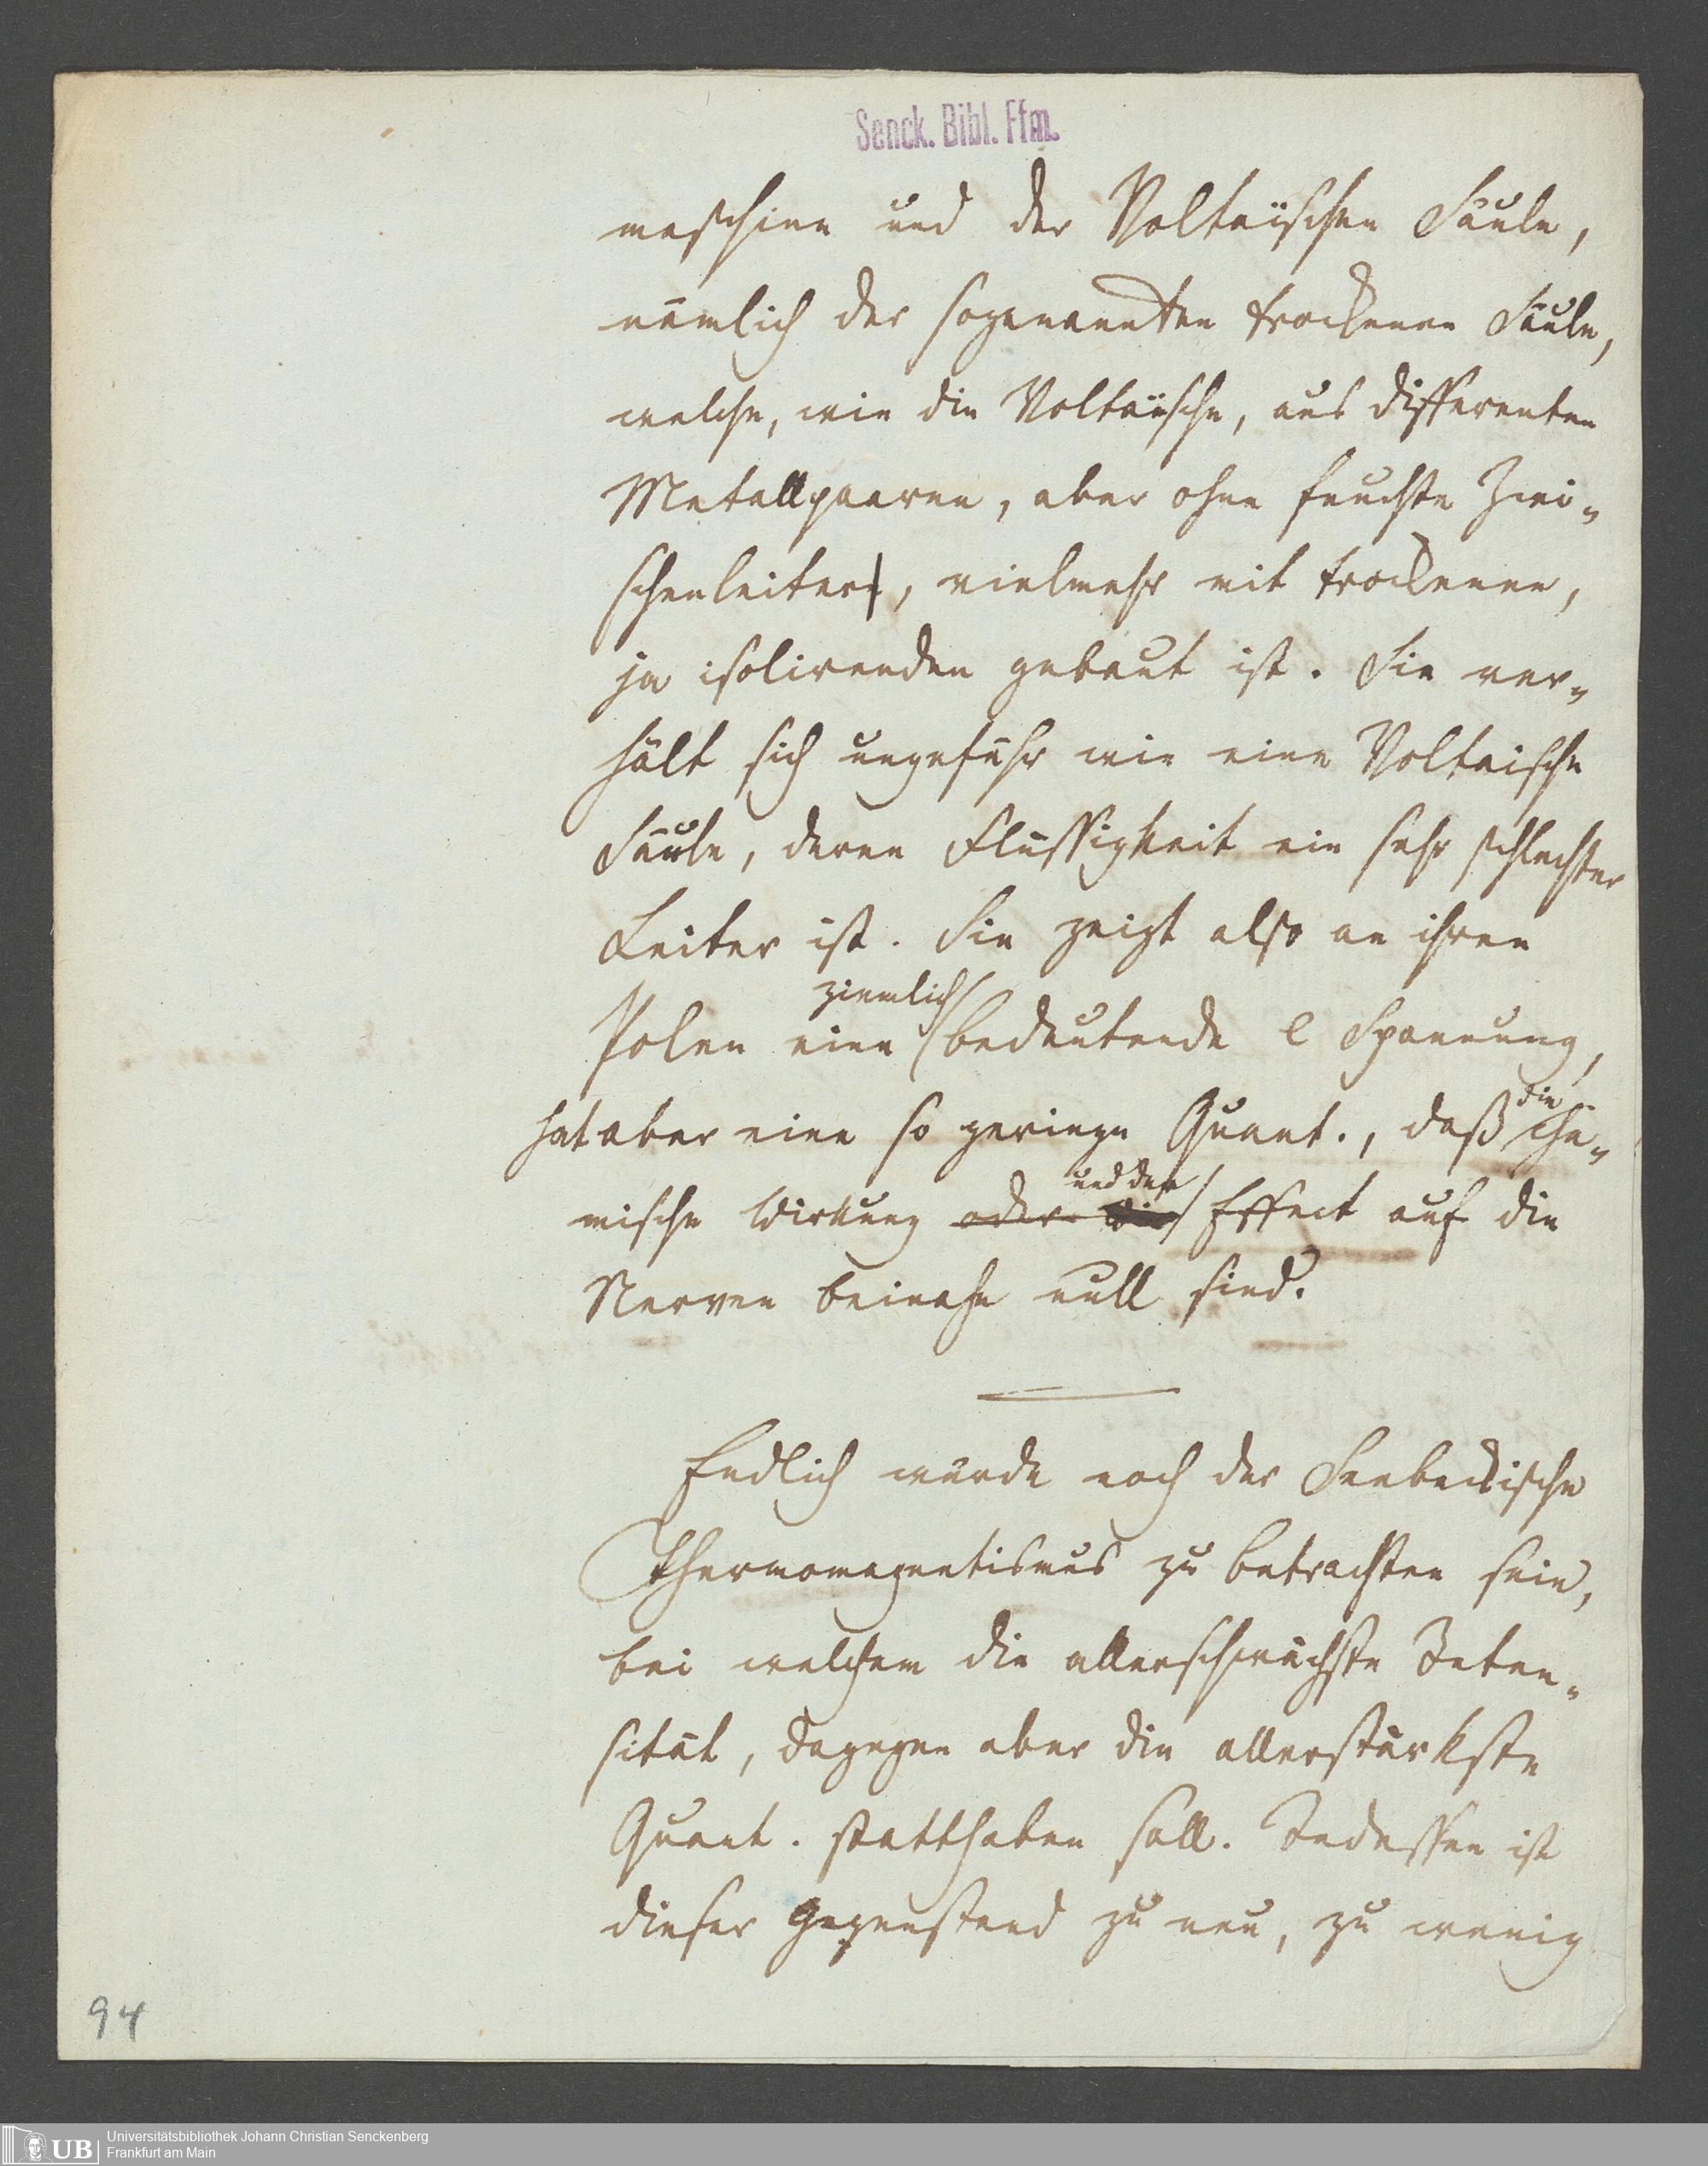 Senck. Bibl. Ffm.
maschine und der Voltaïschen Säule,
nämlich der sogenannten trockenen Säule,
welche, wie die Voltaïsche, aus differenten
Metallpaaren, aber ohne feuchte Zwi-
schenleiter, vielmehr mit trockenen,
ja isolirenden gebaut ist. Sie ver-
hält sich ungefähr wie eine Voltaische
Säule, deren Flüssigkeit ein sehr schlechter
Leiter ist. Sie zeigt also an ihren
ziemlich
Polen eine bedeutende e Spannung,
hat aber eine so geringe Quant., daß die che-
mische Wirkung oder und der Effect auf die
Nerven beinahe null sind.
Endlich würde noch der Seebeckische
Thermomagnetismus zu betrachten sein,
bei welchem die allerschwächste Inten-
sität, dagegen aber die allerstärkste
Quant. statthaben soll. Indessen ist
dieser Gegenstand zu neu, zu wenig
94
UB Universitätsbibliothek Johann Christian Senckenberg
Frankfurt am Main